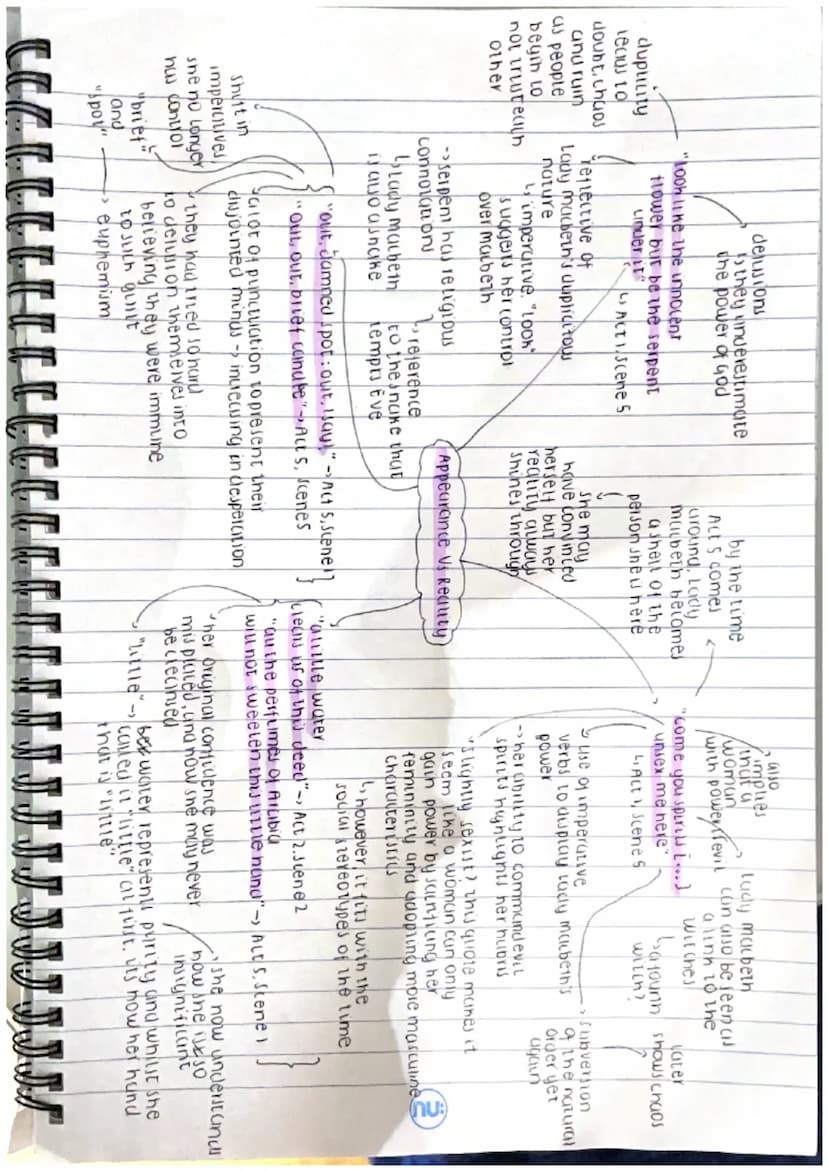 Appearance Vs Reality
delusions
↳ they underestimate
the power of God
"look like the innocent
flower but be the serpent
under it"
↳ Act 1, Scene 5
duplicity
leads to
doubt, chaos
and ruin
as people
begin to
not trust each
other
reflective of
Lady Macbeth's duplicitous
nature
↳ imperative "look"
suggests her control
over Macbeth
→ serpent has religious
connotations
↳ Lady Macbeth
is also a snake
↳ reference
to the snake that
tempts Eve
"out, damned spot: out, I say!" → Act 5, Scene 1
"out, out, brief candle" → Act 5, Scene 5
shift in
imperatives,
she no longer
has control
"brief"
and
"spot"
→ euphemism
↳ a lot of punctuation to present their
disjointed minds → increasing in desperation
↳ they had tried so hard
to delusion themselves into
believing they were immune
to such guilt
by the time
Act 5 comes
around, Lady
Macbeth becomes
a shell of the
person she is here
she may
have convinced
herself but her
reality always
shines through
"come you spirits [...]
unsex me here"
↳ Act 1, Scene 5
also
implies
that a
woman
with power = evil
Lady Macbeth
can also be seen as
a link to the
witches
↳ a fourth
witch?
later
shows chaos
↳ use of imperative
verbs to display Lady Macbeth's
power
→ subversion
of the natural
order yet
again
→ her ability to command evil
spirits highlights her hubris
"slightly sexist? This quote makes it
seem like a woman can only
gain power by sacrificing her
femininity and adopting more masculine
characteristics
↳ however, it fits with the
social stereotypes of the time
2
"a little water
clears us of this deed" → Act 2, Scene 2
"all the perfumes of Arabia
will not sweeten this little hand" → Act 5, Scene 1
↳ her original confidence was
misplaced, and now she may never
be cleansed
↳ she now understands
how she is so
insignificant
"little" → water represents purity and whilst she
called it "little" at first, it's now her hand
that is "little"